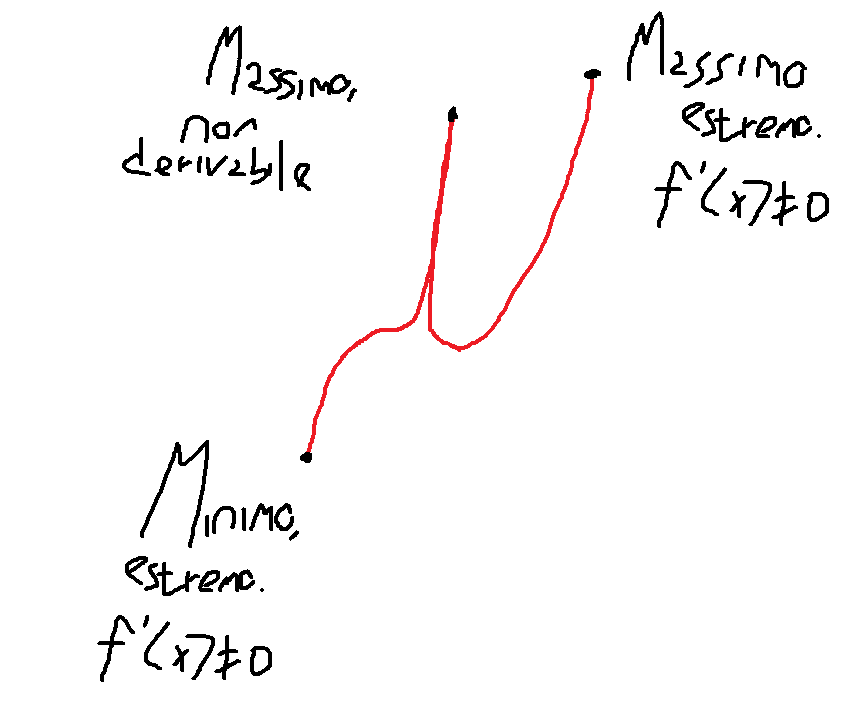 Massimo,
non
derivable
Massimo
estremo.
f'(x)≠0
Minimo,
estremo.
f'(x)≠0